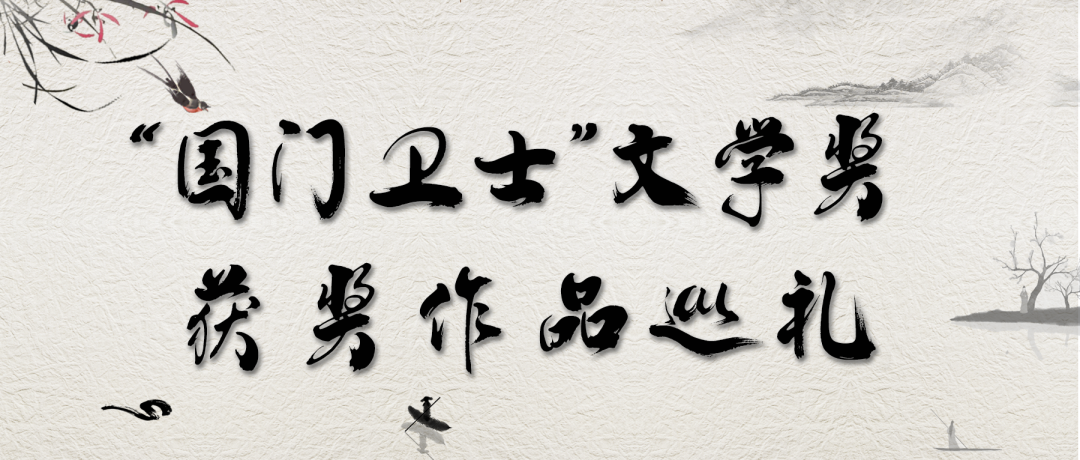 “国门卫士”文学奖
获奖作品巡礼